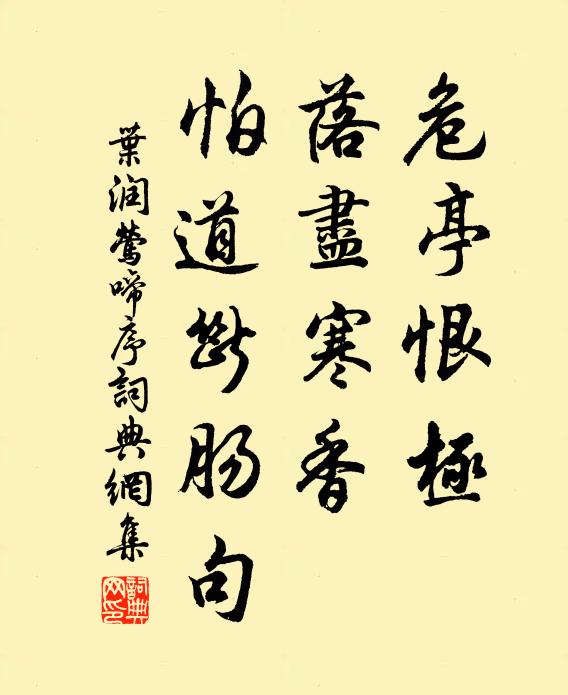 危亭恨極
落盡寒香
怕道斷肠句
葉润鶯啼序詞典網集
詞典网印